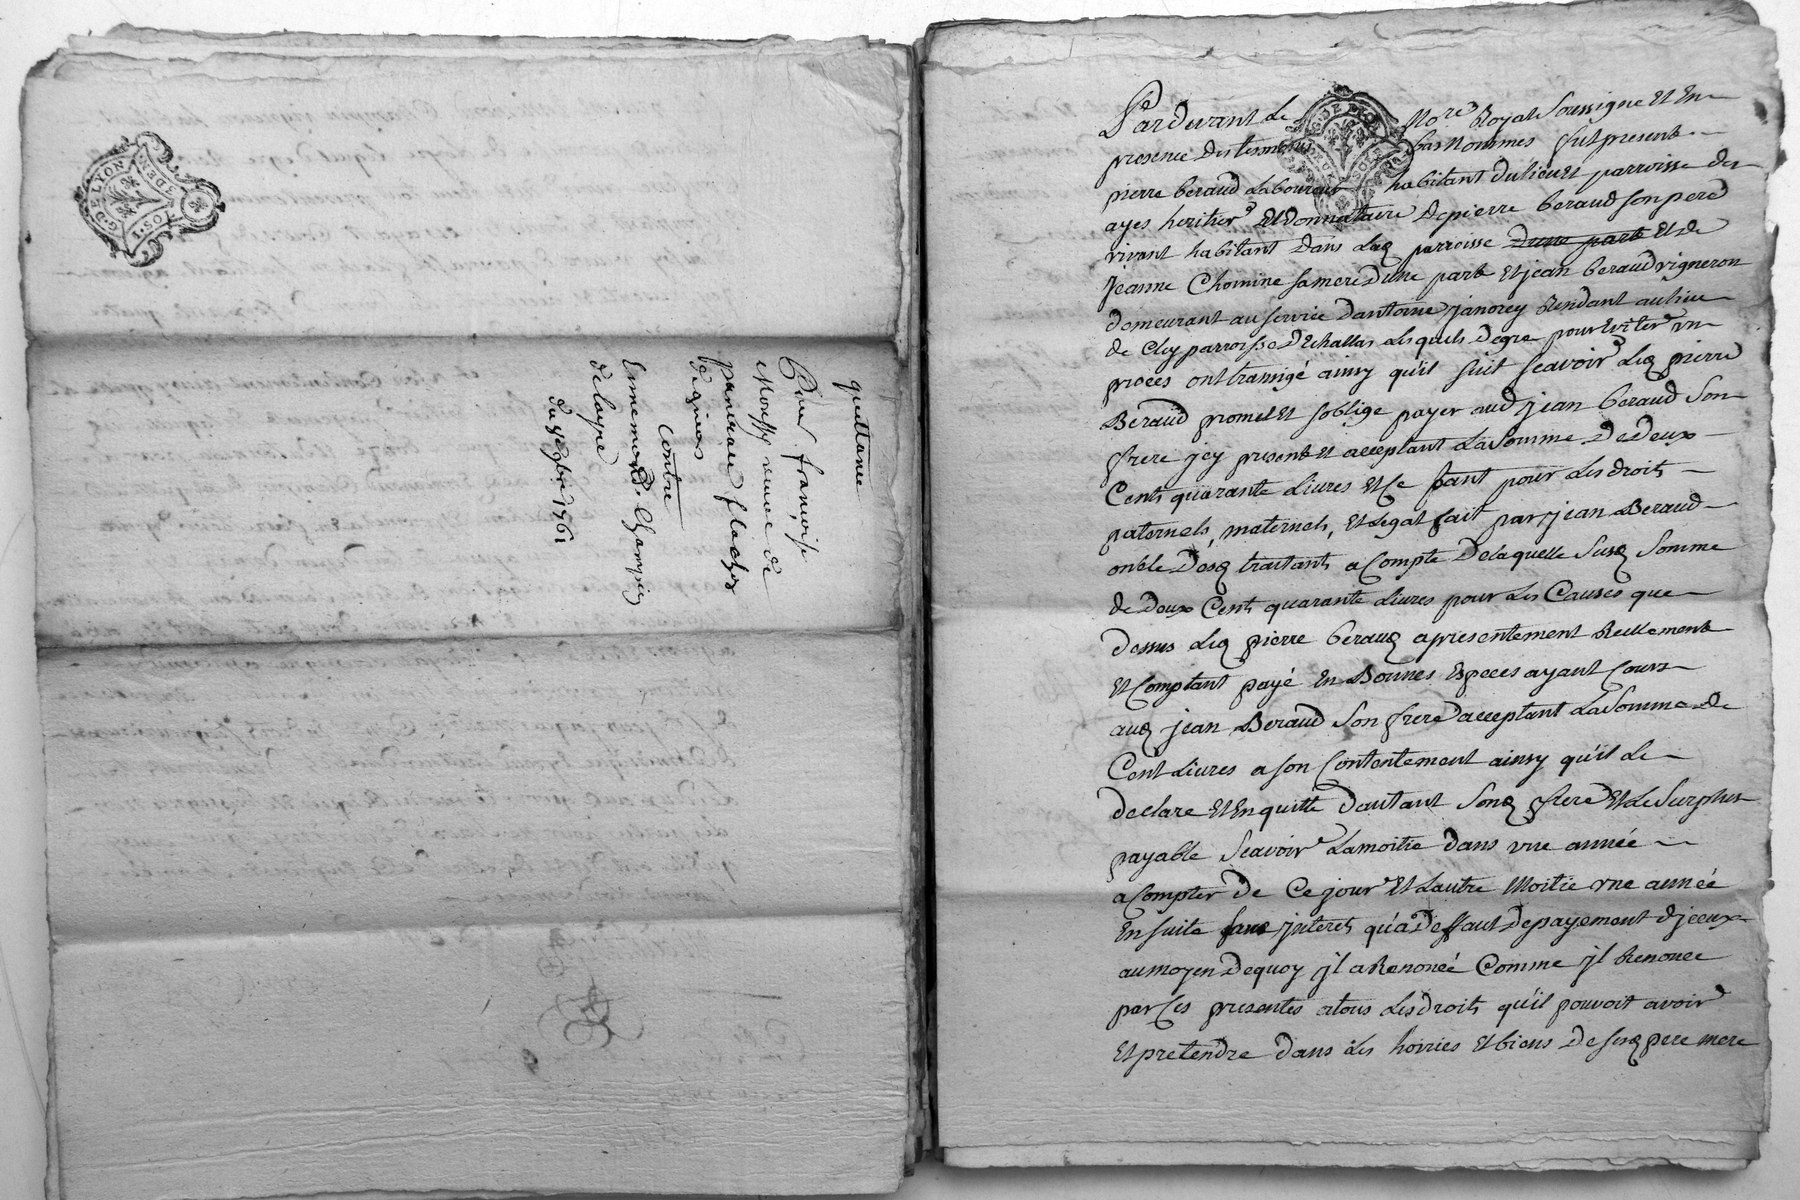 G. DE LYON
3 DEN
quittance
Pour françoise
Moussy veuve de
pancrace flachy
de givors
contre
Ennemond Champin
de loyre
du 7e 7bre 1761
G. DE LYON
Pardevant Le Nore Royal Soussigné Et En
presence des tesmoins bas Nommes fut present
pierre beraud Laboureur habitant du lieu Et parroisse des
ayes heritier Et donnataire de pierre beraud son pere
vivant habitant dans Lad parroisse d'une part Et de
jeanne Chomine sa mere d'une part Et jean beraud vigneron
demeurant au service d'antoine janorey Rendant au lieu
de Cley parroisse d'Echallas Lesquels de gre pour Eviter un
proces ont transigé ainsy qu'il suit scavoir Led pierre
Beraud promet Et s'oblige payer aud jean beraud Son
frere jcy present Et acceptant La Somme de deux
Cents quarante Livres Et Ce pour Les droits
paternels, maternels, Et Legat fait par jean Beraud
oncle desd traitants a Compte de laquelle Susd Somme
de deux Cents quarante Livres pour Les Causes que
dessus Led pierre beraud a presentement Reellement
Et Comptant payé En Bonnes Especes ayant Cours
aud jean Beraud Son frere acceptant La Somme de
Cent Livres a son Contentement ainsy qu'il Le
declare Et En quitte d'autant Sond frere Et Le Surplus
payable Scavoir La moitie dans une année
a Compter de Ce jour Et Lautre Moitie une année
Ensuite sans jnterets qu'a deffaut de payement d'jceux
au moyen de quoy jl a Renoncé Comme jl Renonce
par Ces presentes a tous Les droits qu'il pouvoit avoir
Et pretendre dans Les hoiries Et biens de sesd pere mere